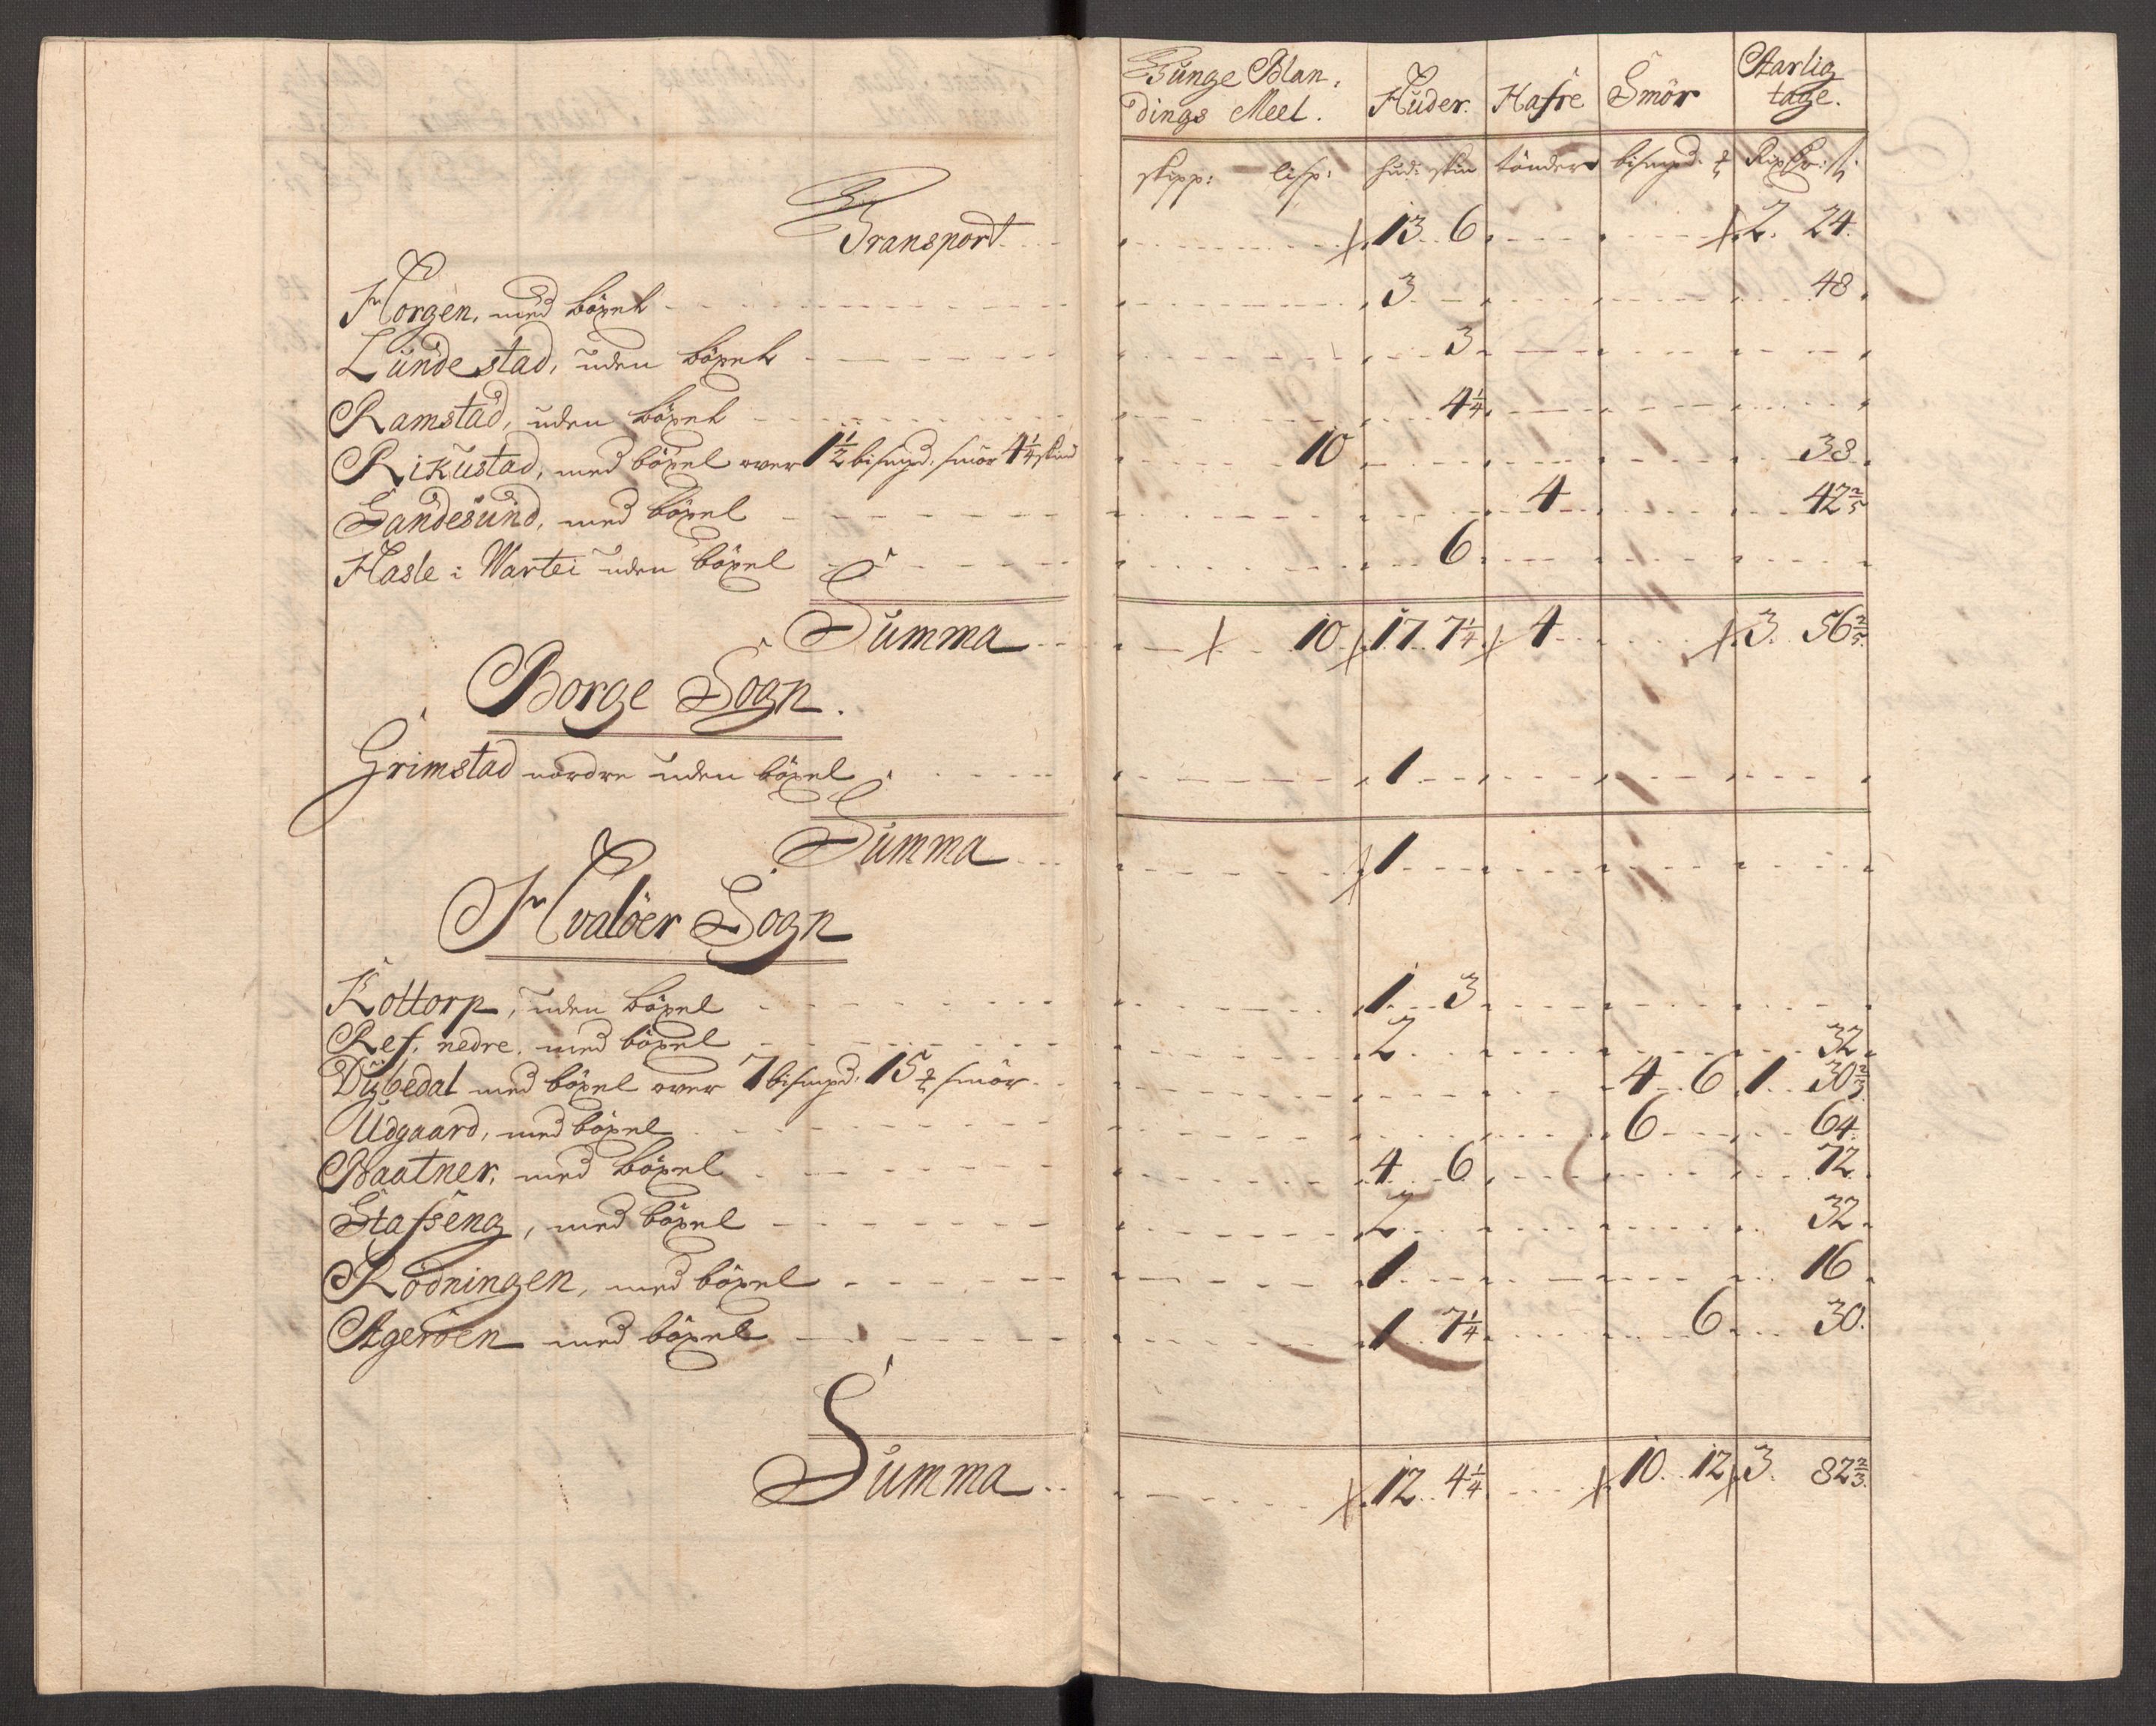 Tunge Blandings Meel. Huder. Hafre Smör Aarlig tage.
skipp: lisp: hud: skin tönder bismpd: ℔ Rixdr: ß:
Transport 13 6 2. 24.
Horgen, med böxel 3 48.
Lundestad, uden böxel 3
Ramstad, uden böxel 4 1/4
Rikustad, med böxel over 1 1/2 bismpd: smör 4 1/4 skind 10 38.
Sandesund, med böxel 4 42 2/5
Hasle i Wartei uden böxel 6
Summa 10 17. 7 1/4 4 3. 56 2/5.
Borge Sogn.
Grimstad nordre uden böxel 1
Summa 1
Hvalöer Sogn
Kottorp, uden böxel 1 3
Ref, nedre, med böxel 2 32.
Dÿbedal med böxel over 7 bismpd: 15 ℔ smör 4 6 1 30 2/3.
Udgaard, med böxel 6 64.
Baatner, med böxel 4 6 72.
Stafseng, med böxel 2 32.
Rödningen, med böxel 1 16.
Ageröen med böxel 1 7 1/4 6 30.
Summa 12 4 1/4 10. 12 3. 82 2/3.